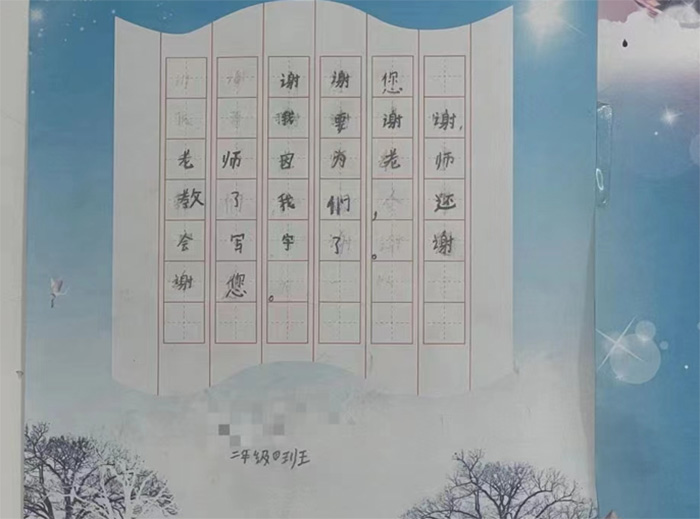 谢谢您
我要谢谢，
老师因为老师
教了我们，还
会写字了。谢
谢您。
二年级四班